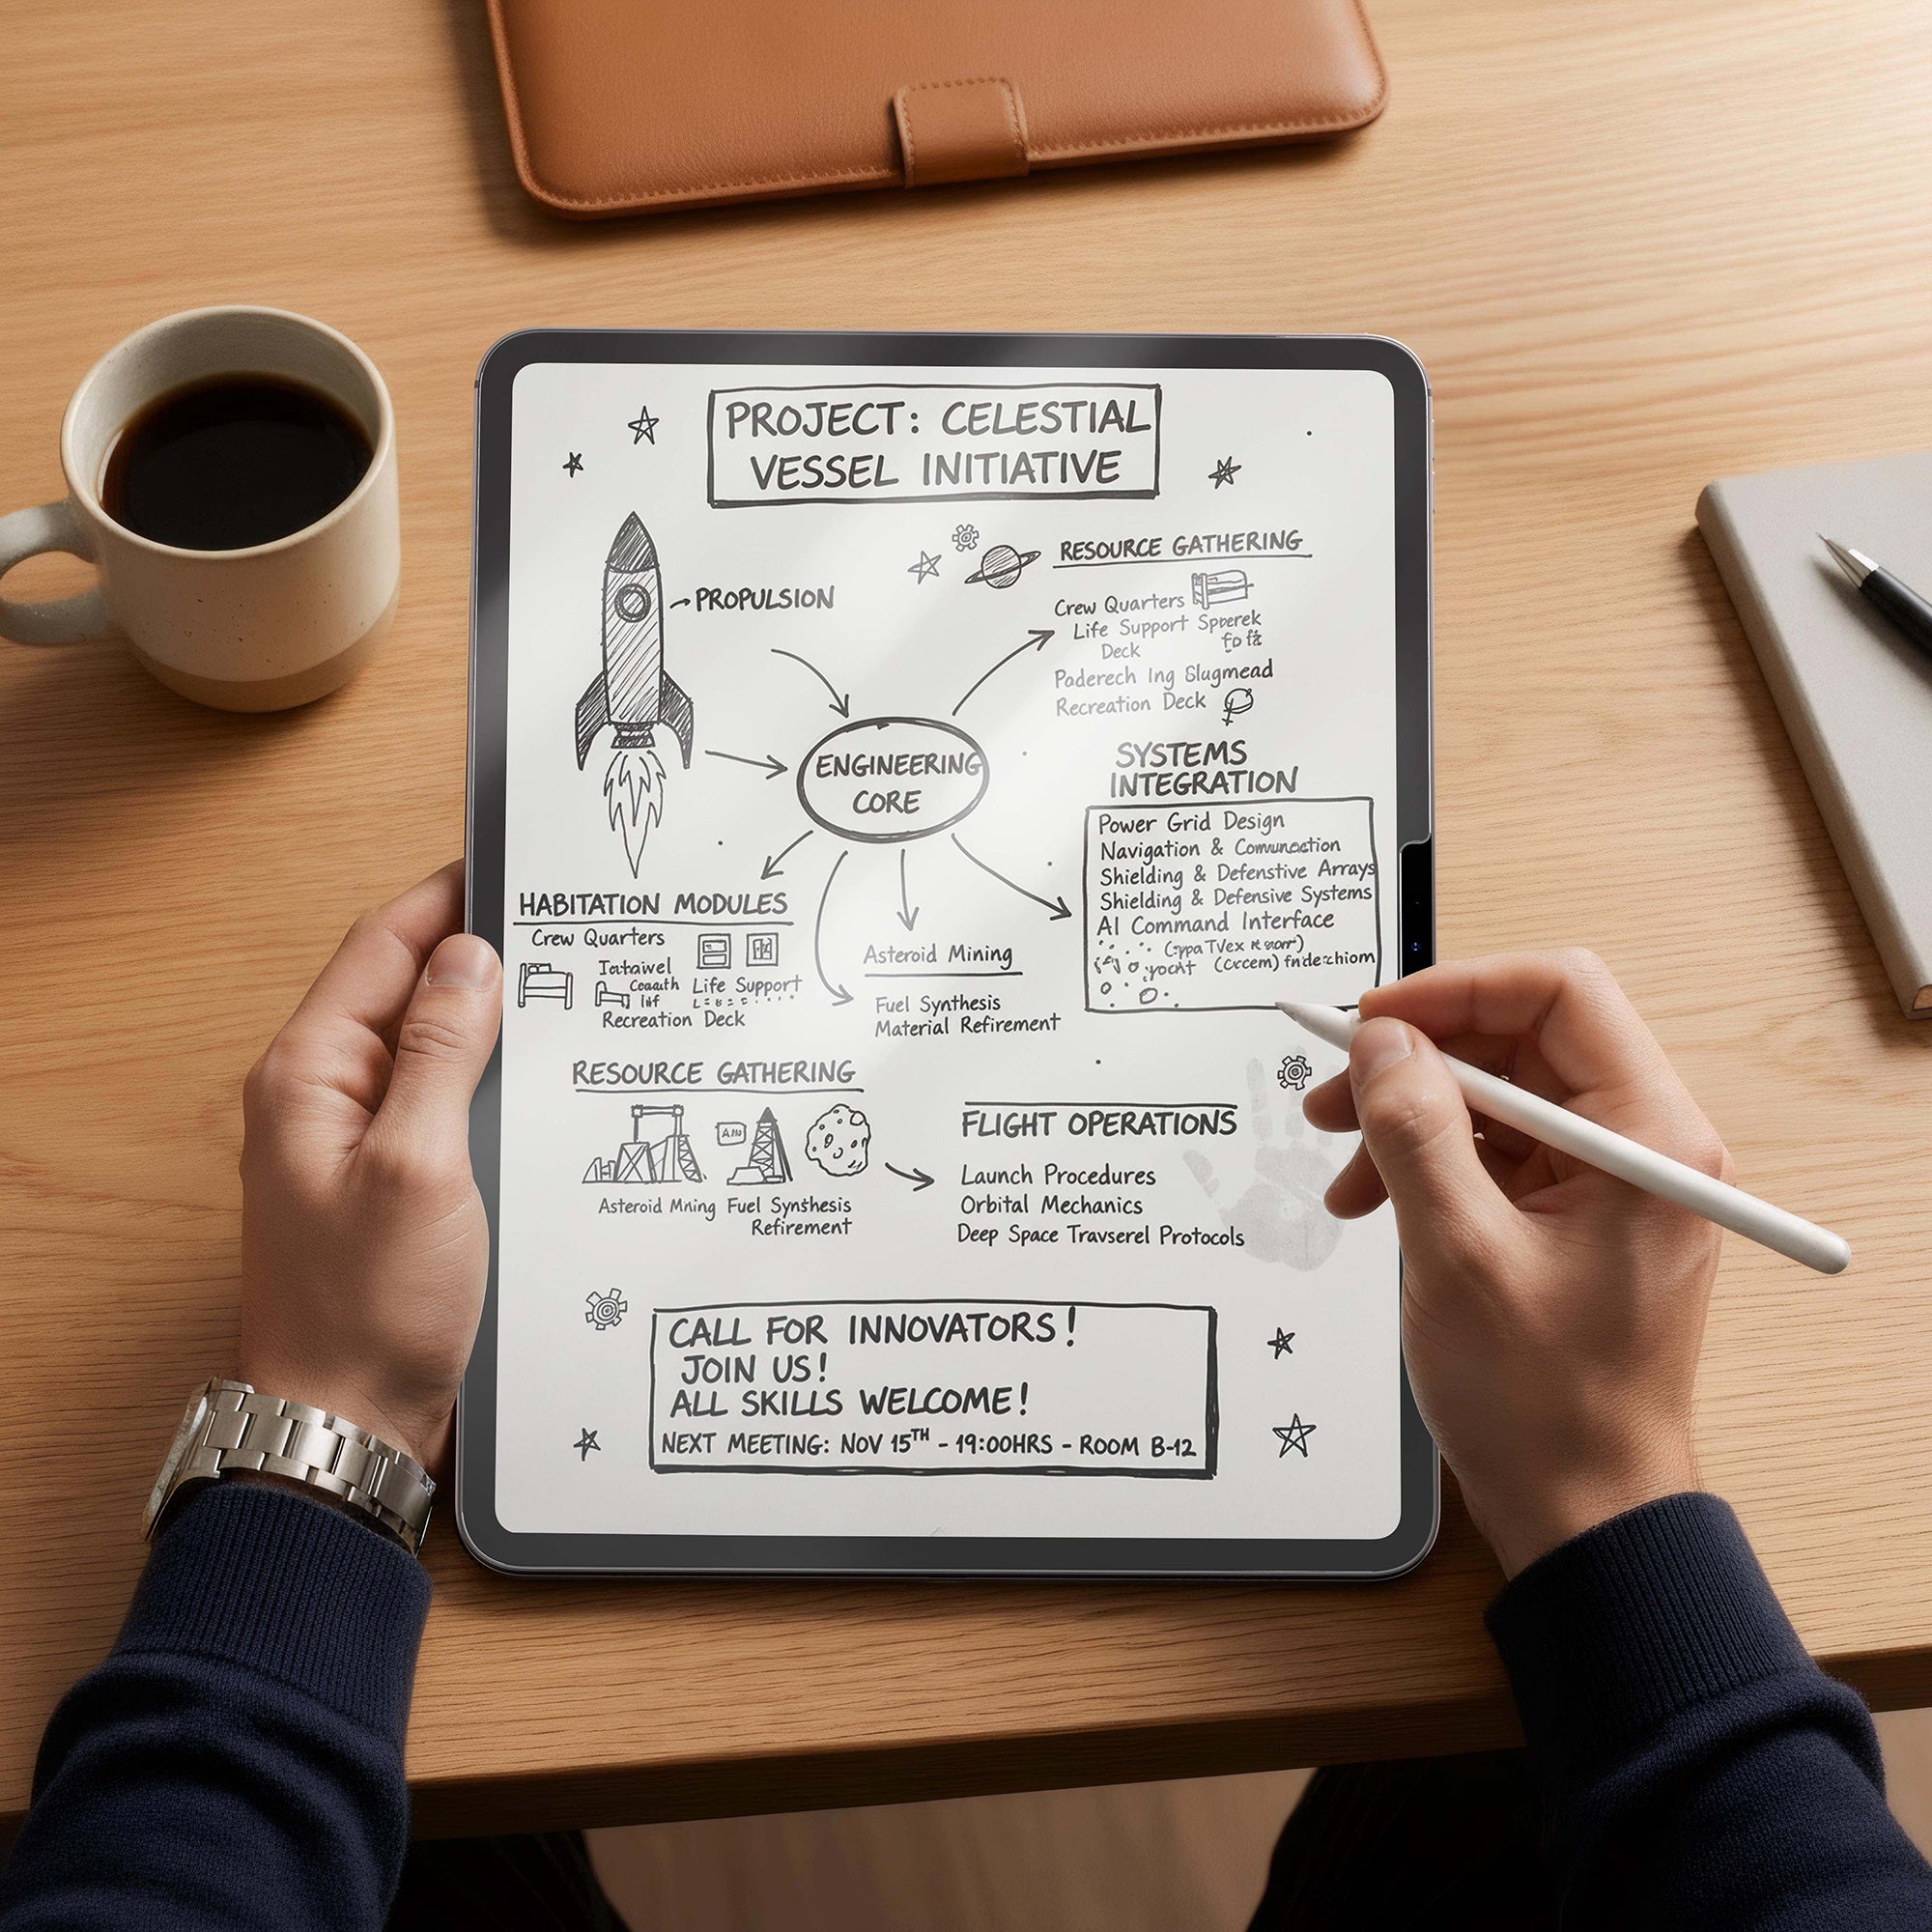 PROJECT: CELESTIAL
VESSEL INITIATIVE
PROPULSION
RESOURCE GATHERING
Crew Quarters
Life Support
Deck
Paderech Ing Slugmead
Recreation Deck
ENGINEERING
CORE
SYSTEMS
INTEGRATION
Power Grid Design
Navigation &
Shielding & Defenstive Arrays
Shielding & Defensive Systems
AI Command Interface
HABITATION MODULES
Crew Quarters
Life Support
Recreation Deck
Asteroid Mining
Fuel Synthesis
Material Refirement
RESOURCE GATHERING
Asteroid Mning Fuel Synthesis
Refirement
FLIGHT OPERATIONS
Launch Procedures
Orbital Mechanics
Deep Space Travserel Protocols
CALL FOR INNOVATORS!
JOIN US!
ALL SKILLS WELCOME!
NEXT MEETING: NOV 15TH - 19:00HRS - ROOM B-12